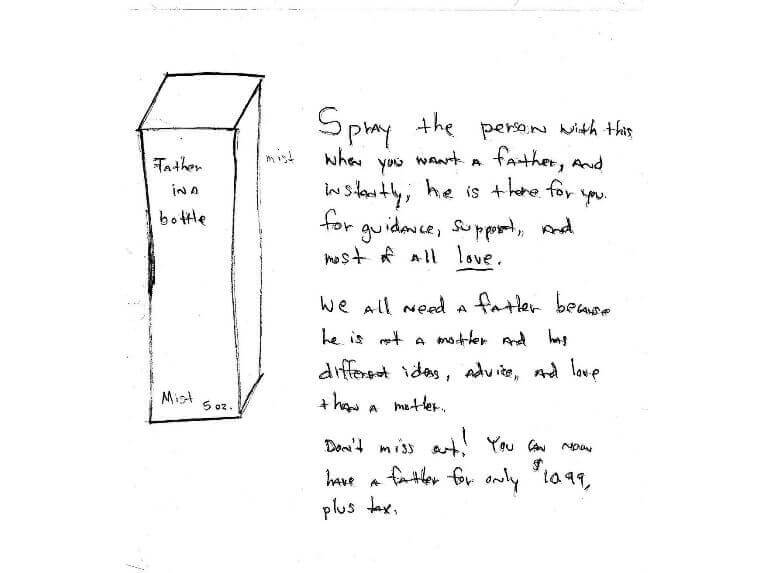 Father
in a
bottle
Mist 5 oz.
mist
Spray the person with this
when you want a father, and
instantly, he is there for you.
for guidance, support, and
most of all love.
We all need a father because
he is not a mother and has
different ideas, advice, and love
than a mother.
Don't miss out! You can now
have a father for only $10.99,
plus tax.